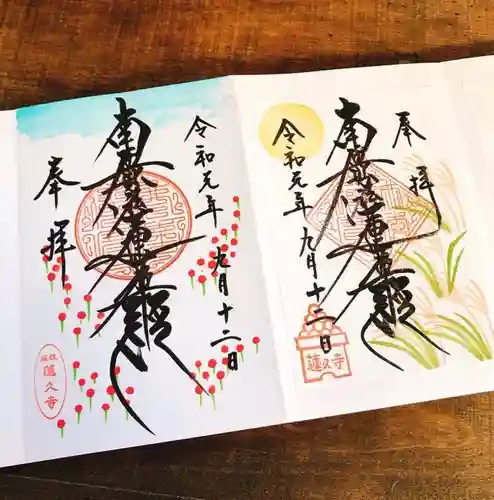 奉拝
令和元年九月十二日
南無妙法蓮華経
蓮久寺
奉拝
令和元年九月十二日
南無妙法蓮華経
蓮久寺